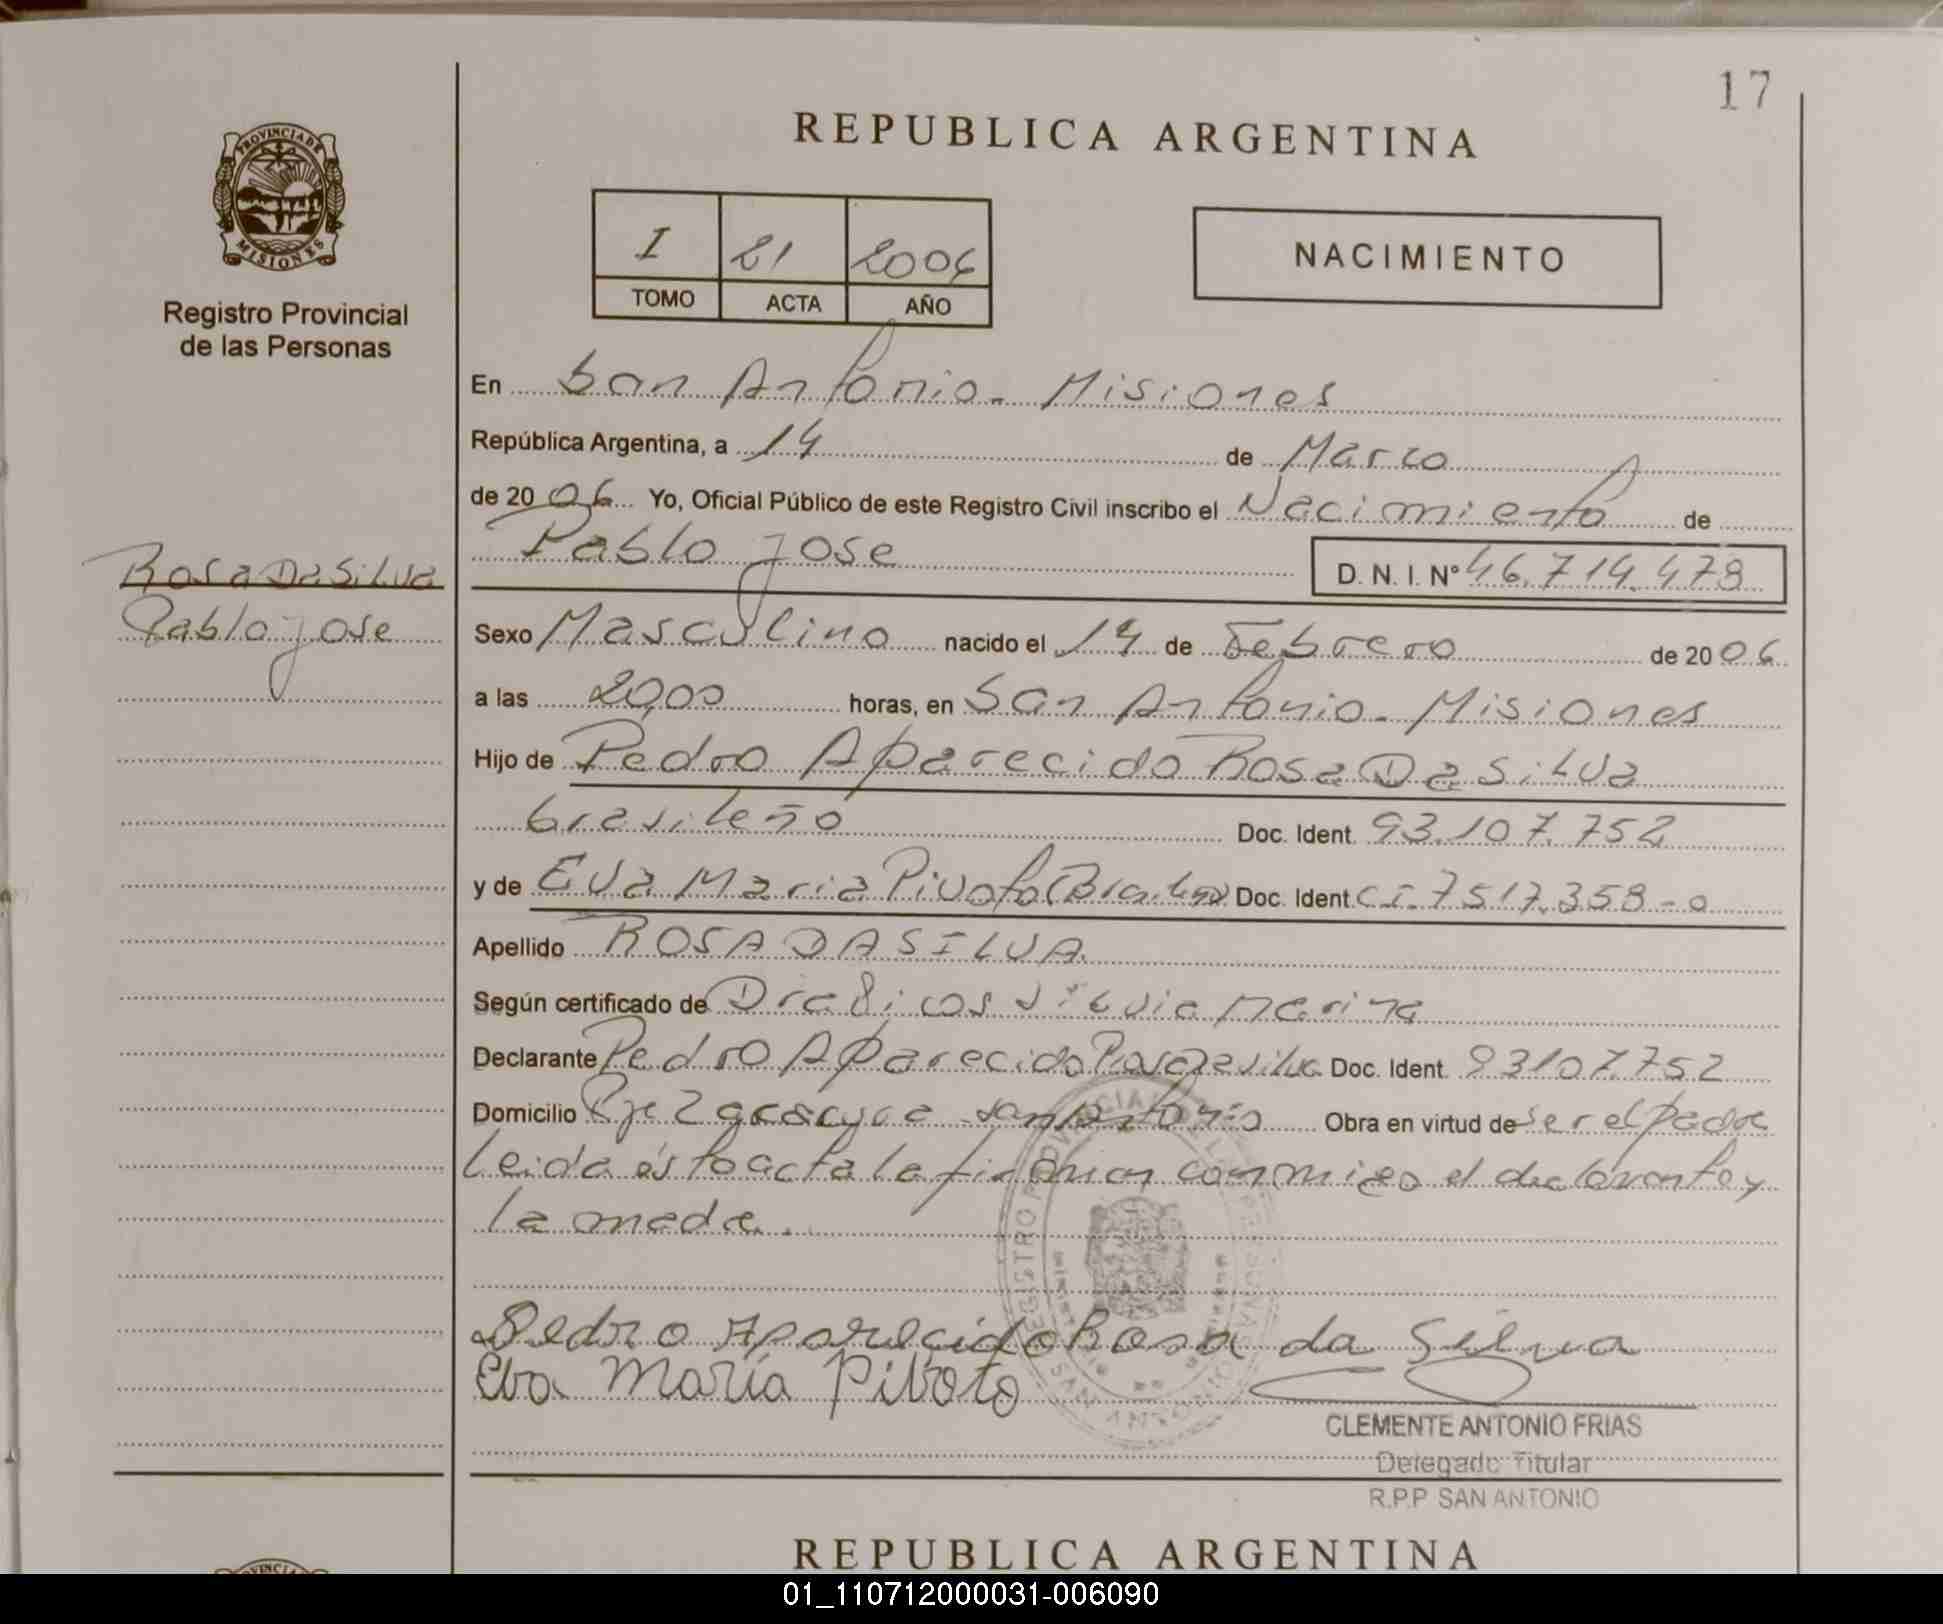 17
REPUBLICA ARGENTINA
PROVINCIA DE MISIONES
Registro Provincial
de las Personas
I 21 2006
TOMO ACTA AÑO
NACIMIENTO
En San Antonio - Misiones
República Argentina, a 14 de Marzo
de 2006 Yo, Oficial Público de este Registro Civil inscribo el Nacimiento de
Pablo Jose D. N. I. Nº 46.714.478
Rosa Da Silva
Pablo Jose
Sexo Masculino nacido el 14 de Febrero de 2006
a las 20,00 horas, en San Antonio - Misiones
Hijo de Pedro Aparecido Rosa Da Silva
brasileño Doc. Ident. 93.107.752
y de Eva Maria Pivoto Doc. Ident. C.I. 7517.358-0
Apellido ROSA DA SILVA
Según certificado de Silvia Marina
Declarante Pedro Aparecido Rosa Da Silva Doc. Ident. 93107.752
Domicilio San Antonio Obra en virtud de Ser el padre
Leida esta acta la firman conmigo el declarante y
la madre.
Pedro Aparecido Rosa da Silva
Eva María Pivoto
CLEMENTE ANTONIO FRIAS
Delegado Titular
R.P.P SAN ANTONIO
REPUBLICA ARGENTINA
01_110712000031-006090